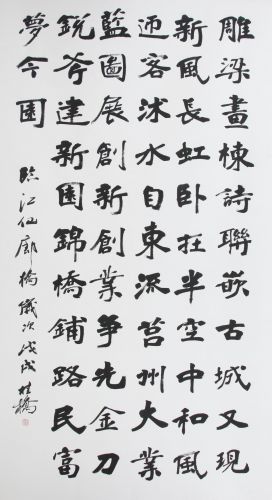 雕梁畫棟詩聯嵌古城又現
新風長虹卧在半空中和風
迎客沭水自東流莒州大業
藍圖展創新創業爭先金刀
鋭斧建新園錦橋鋪路民富
夢今圓
臨江仙廊橋歲次戊戌桂橋